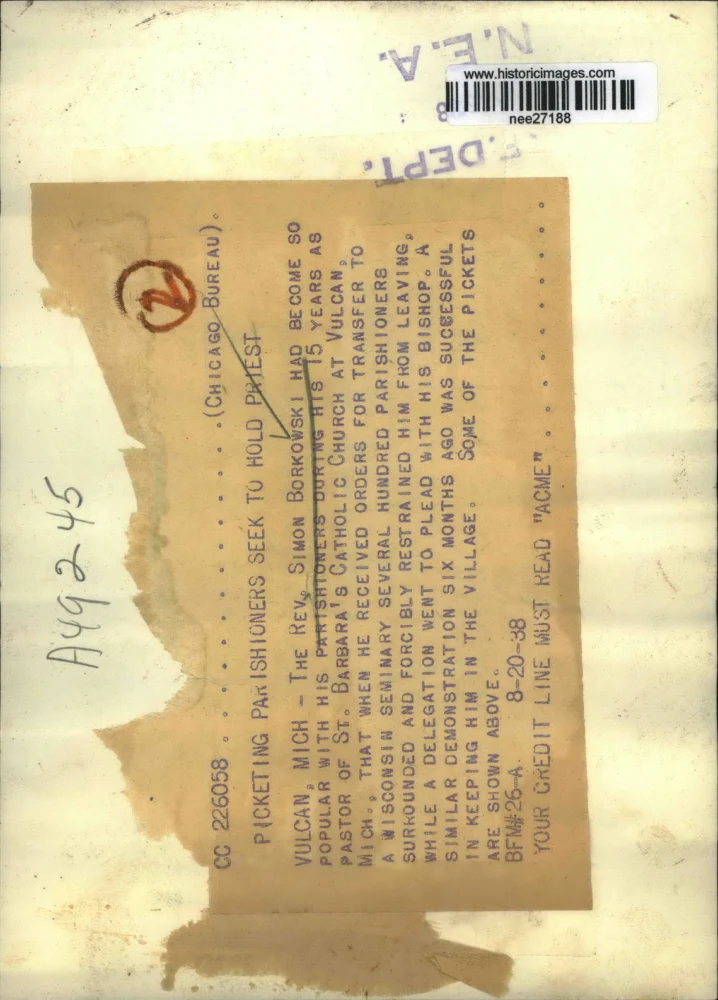 N.E.A.
www.historicimages.com
8
nee27188
F. DEPT.
A49245
2
CC 226058 . . . . . . . . . . . . . . . . (CHICAGO BUREAU).
PICKETING PARISHIONERS SEEK TO HOLD PRIEST
VULCAN, MICH - THE REV. SIMON BORKOWSKI HAD BECOME SO
POPULAR WITH HIS PARISHIONERS DURING HIS 15 YEARS AS
PASTOR OF ST. BARBARA'S CATHOLIC CHURCH AT VULCAN,
MICH., THAT WHEN HE RECEIVED ORDERS FOR TRANSFER TO
A WISCONSIN SEMINARY SEVERAL HUNDRED PARISHIONERS
SURROUNDED AND FORCIBLY RESTRAINED HIM FROM LEAVING,
WHILE A DELEGATION WENT TO PLEAD WITH HIS BISHOP. A
SIMILAR DEMONSTRATION SIX MONTHS AGO WAS SUCCESSFUL
IN KEEPING HIM IN THE VILLAGE. SOME OF THE PICKETS
ARE SHOWN ABOVE.
BFM#26-A. 8-20-38
YOUR CREDIT LINE MUST READ "ACME" . . . . . . . .